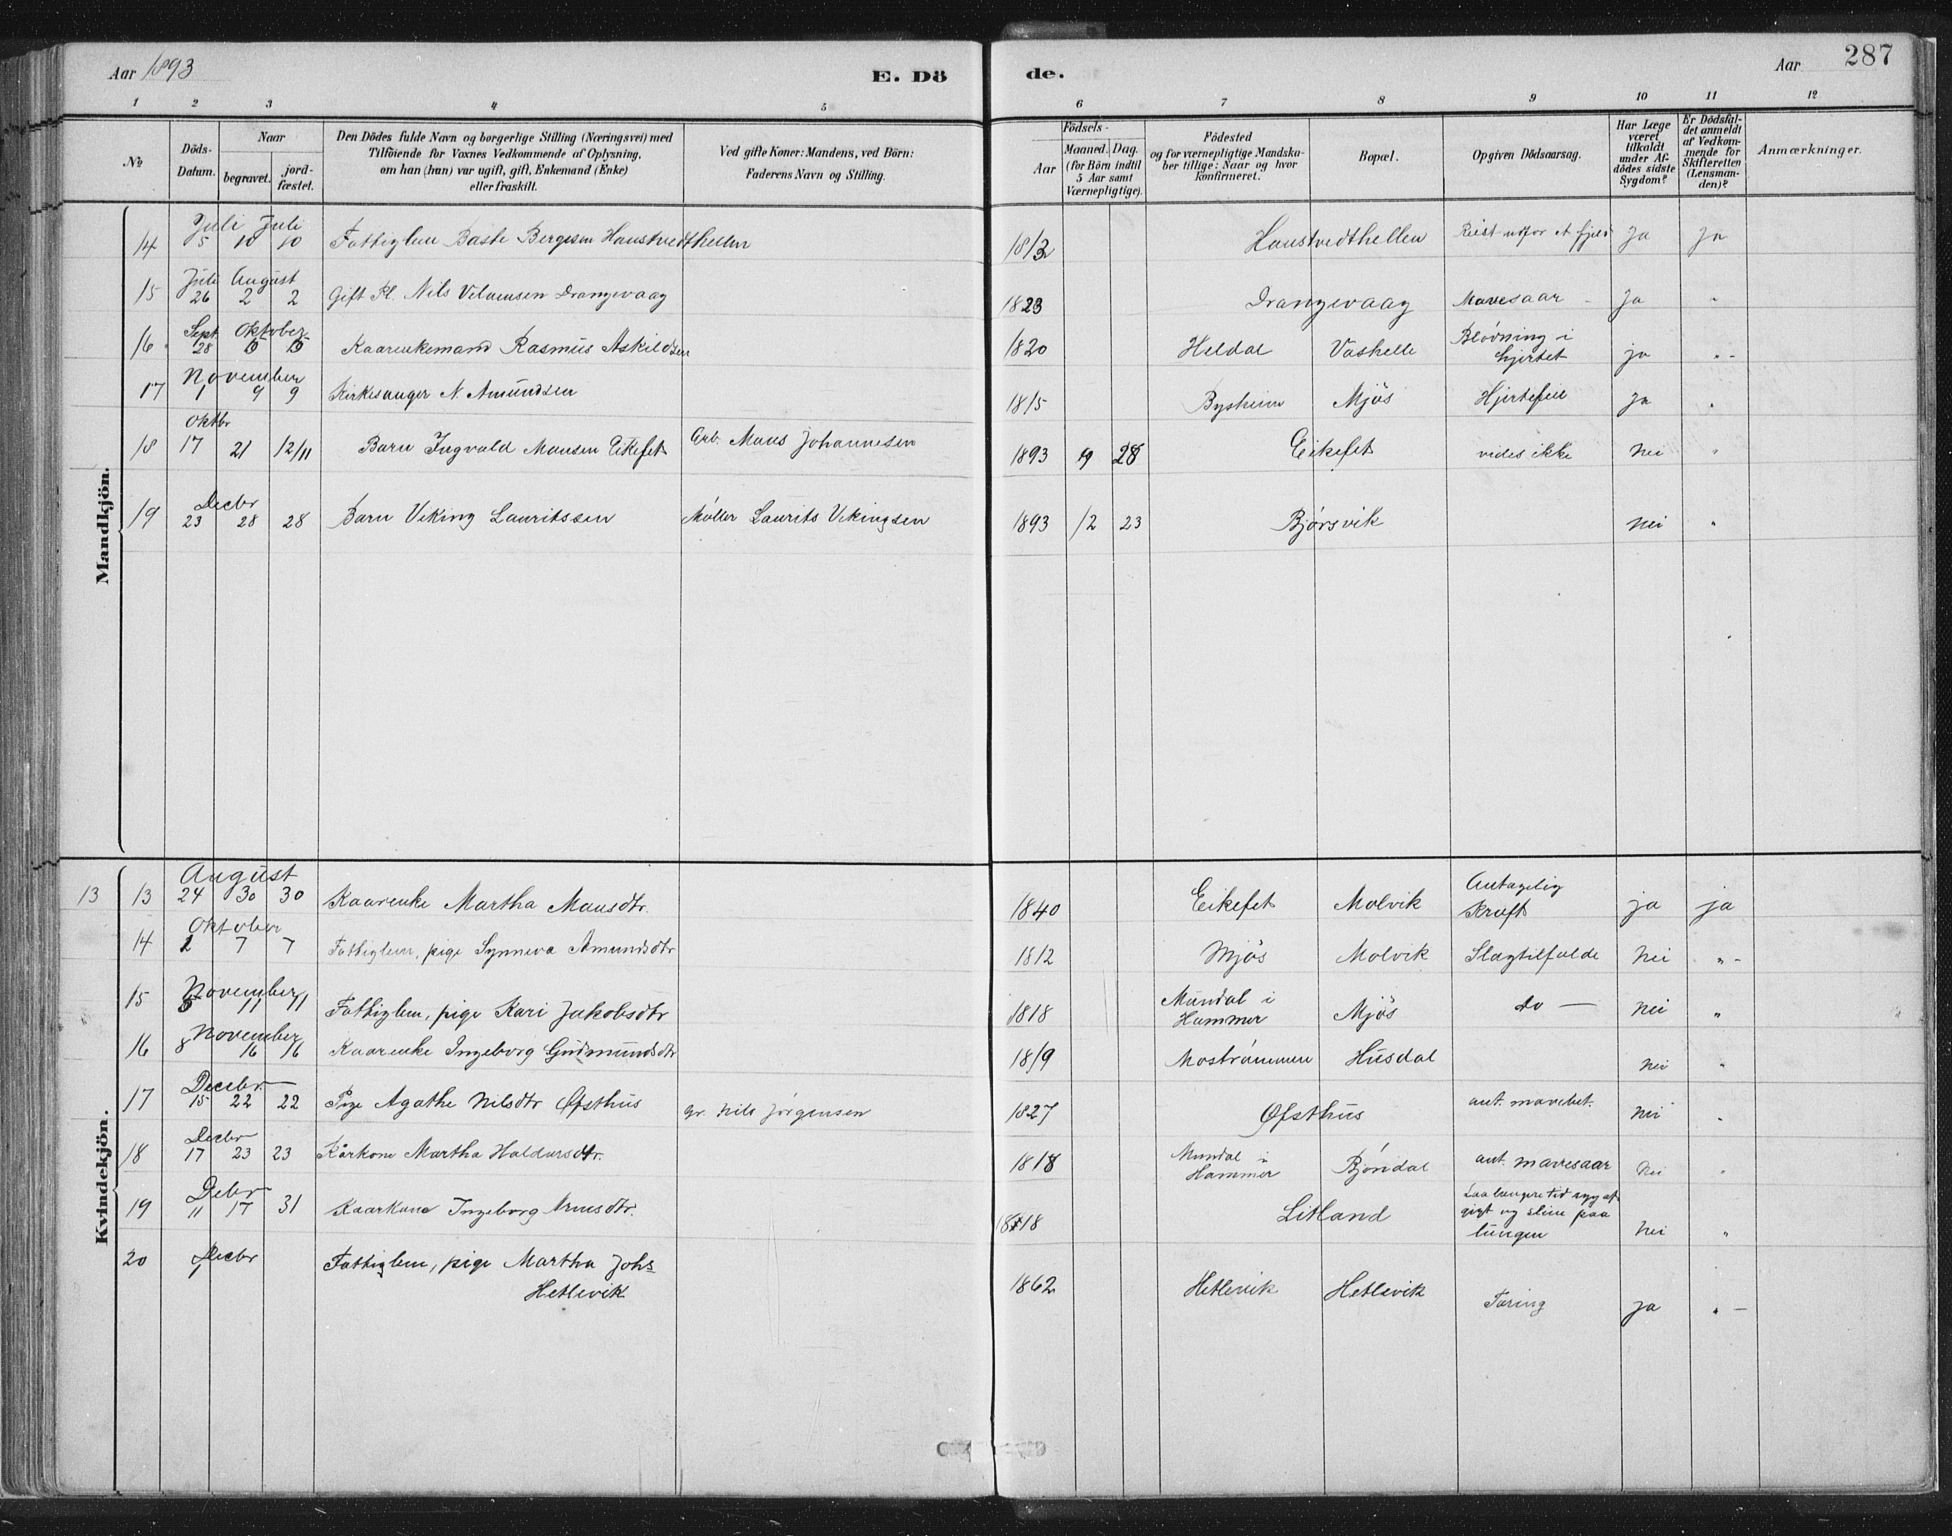 Aar 1893 E. Dö de. Aar 287
1 2 3 4 5 6 7 8 9 10 11 12
No
Döds-Datum.
Naar
begravet.
jord-fæstet.
Den Dödes fulde Navn og borgerlige Stilling (Næringsvei) med
Tilföiende for Voxnes Vedkommende af Oplysning,
om han (hun) var ugift, gift, Enkemand (Enke)
eller fraskilt.
Ved gifte Koner: Mandens, ved Börn:
Faderens Navn og Stilling.
Födsels-
Aar
Maaned. Dag.
(for Börn indtil
5 Aar samt
Værnepligtige).
Födested
og for værnepligtige Mandska-
ber tillige: Naar og hvor
konfirmeret.
Bopæl.
Opgiven Dödsaarsag.
Har Læge
været
tilkaldt
under Af-
dödes sidste
Sygdom?
Er Dödsfal-
det anmeldt
af Vedkom-
mende for
Skifteretten
(Lensman-
den)?
Anmærkninger.
Mandkjön.
Juli Juli
14 5 10 10 Fattiglem Baste Bergesen Haustvedthellen 1813 Haustvedthellen Reist udfor et fjeld Ja Ja
Juli August
15 26 2 2 Gift Nils Drangevaag 1823 Drangevaag Mavesaar - Ja "
Sept. Oktober
16 28 Kaarenkemand Rasmus Askildsen 1820 Heldal Vashelle Blødning i
hjertet ja " -
November
17 1 9 9 Kirkesanger N. Amundsen 1815 Bysheim Mjøs Hjertefeil Ja "
Oktbr
18 17 21 12/11 Barn Ingvald Monsen Eikefet Arb. Mons Johannesen 1893 9 28 Eikefet vides ikke Nei "
Decbr
19 23 28 28 Barn Viking Lauritssen Møller Laurits Vikingsen 1893 12 23 Bjørsvik Nei "
Kvindekjön.
August
13 13 24 30 30 Kaarenke Martha Monsdtr. 1840 Eikefet Molvik Antagelig
kræft ja ja
Oktober
14 1 7 7 Fattiglem, pige Synneva Amundsdtr 1812 Mjøs Molvik Slagtilfælde Nei " -
November
15 5 11 11 Fattiglem, pige Kari Jakobsdtr 1818 Mundal i
Hammer Mjøs do — Nei "
November
16 8 16 16 Kaarenke Ingeborg Gudmundsdtr 1819 Mostrømmen Husdal Nei "
Decbr.
17 15 22 22 Pige Agathe Nilsdtr Øfsthus gr. Nils Jørgensen 1827 Øfsthus ant. mavebet. Nei "
Decbr
18 17 23 23 Kårkone Martha Haldorsdtr. 1818 Mundal i
Hammer Bjøndal ant. mavesaar Nei "
Debr
19 11 17 31 Kaarkone Ingeborg Arnesdtr. 1818 Litland Laa længere tid syg af
gigt og sliim paa
lungen Nei "
20 Decbr
1 Fattiglem, pige Martha Johs
Hetlevik 1862 Hetlevik Hetlevik Tæring Ja " -